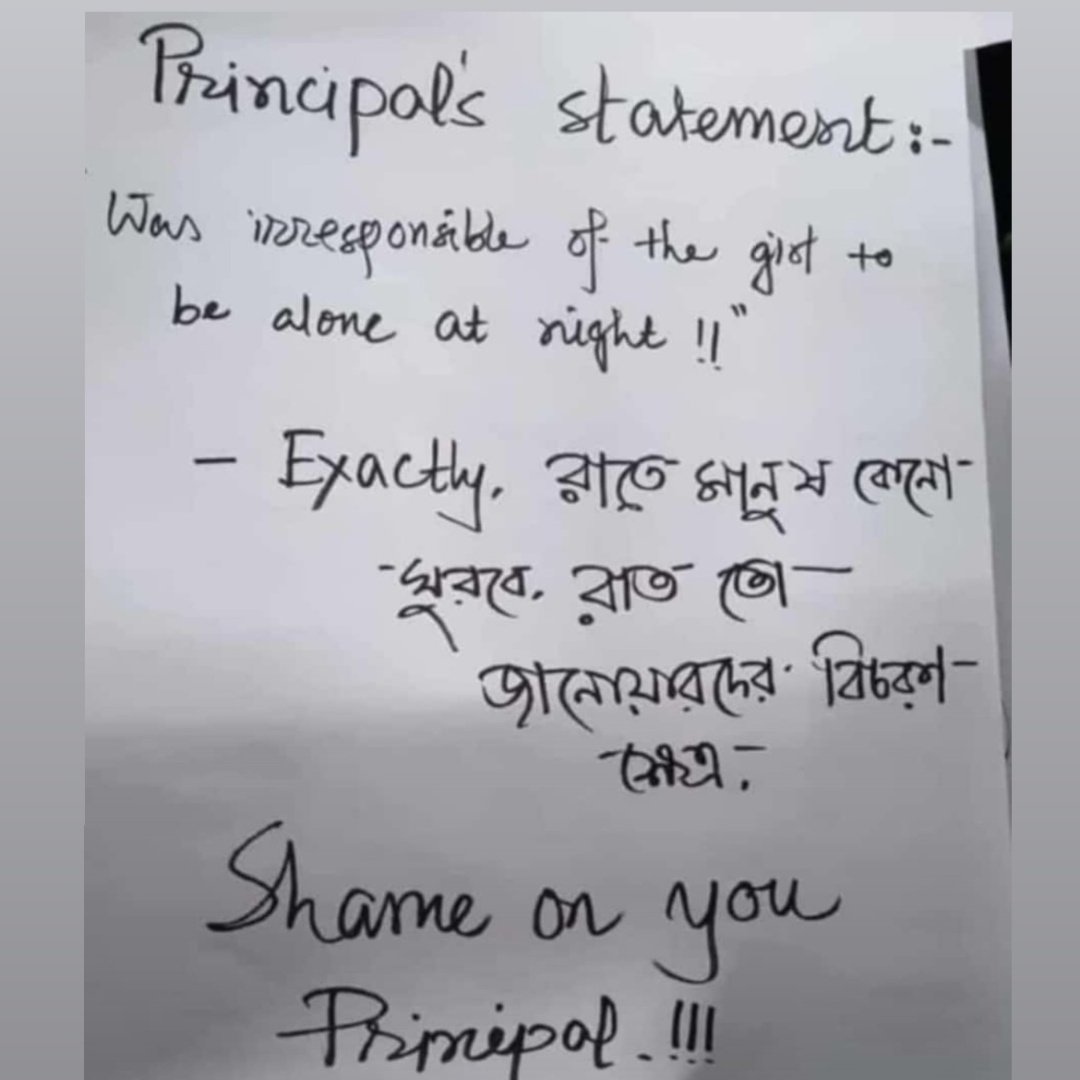 Principal's statement:-
Was irresponsible of the girl to
be alone at night !!"
- Exactly, রাতে মানুষ কেনো-
-ঘুরবে, রাত তো-
জানোয়ারদের বিচরণ-
-ক্ষেত্র.-
Shame on you
Principal. !!!